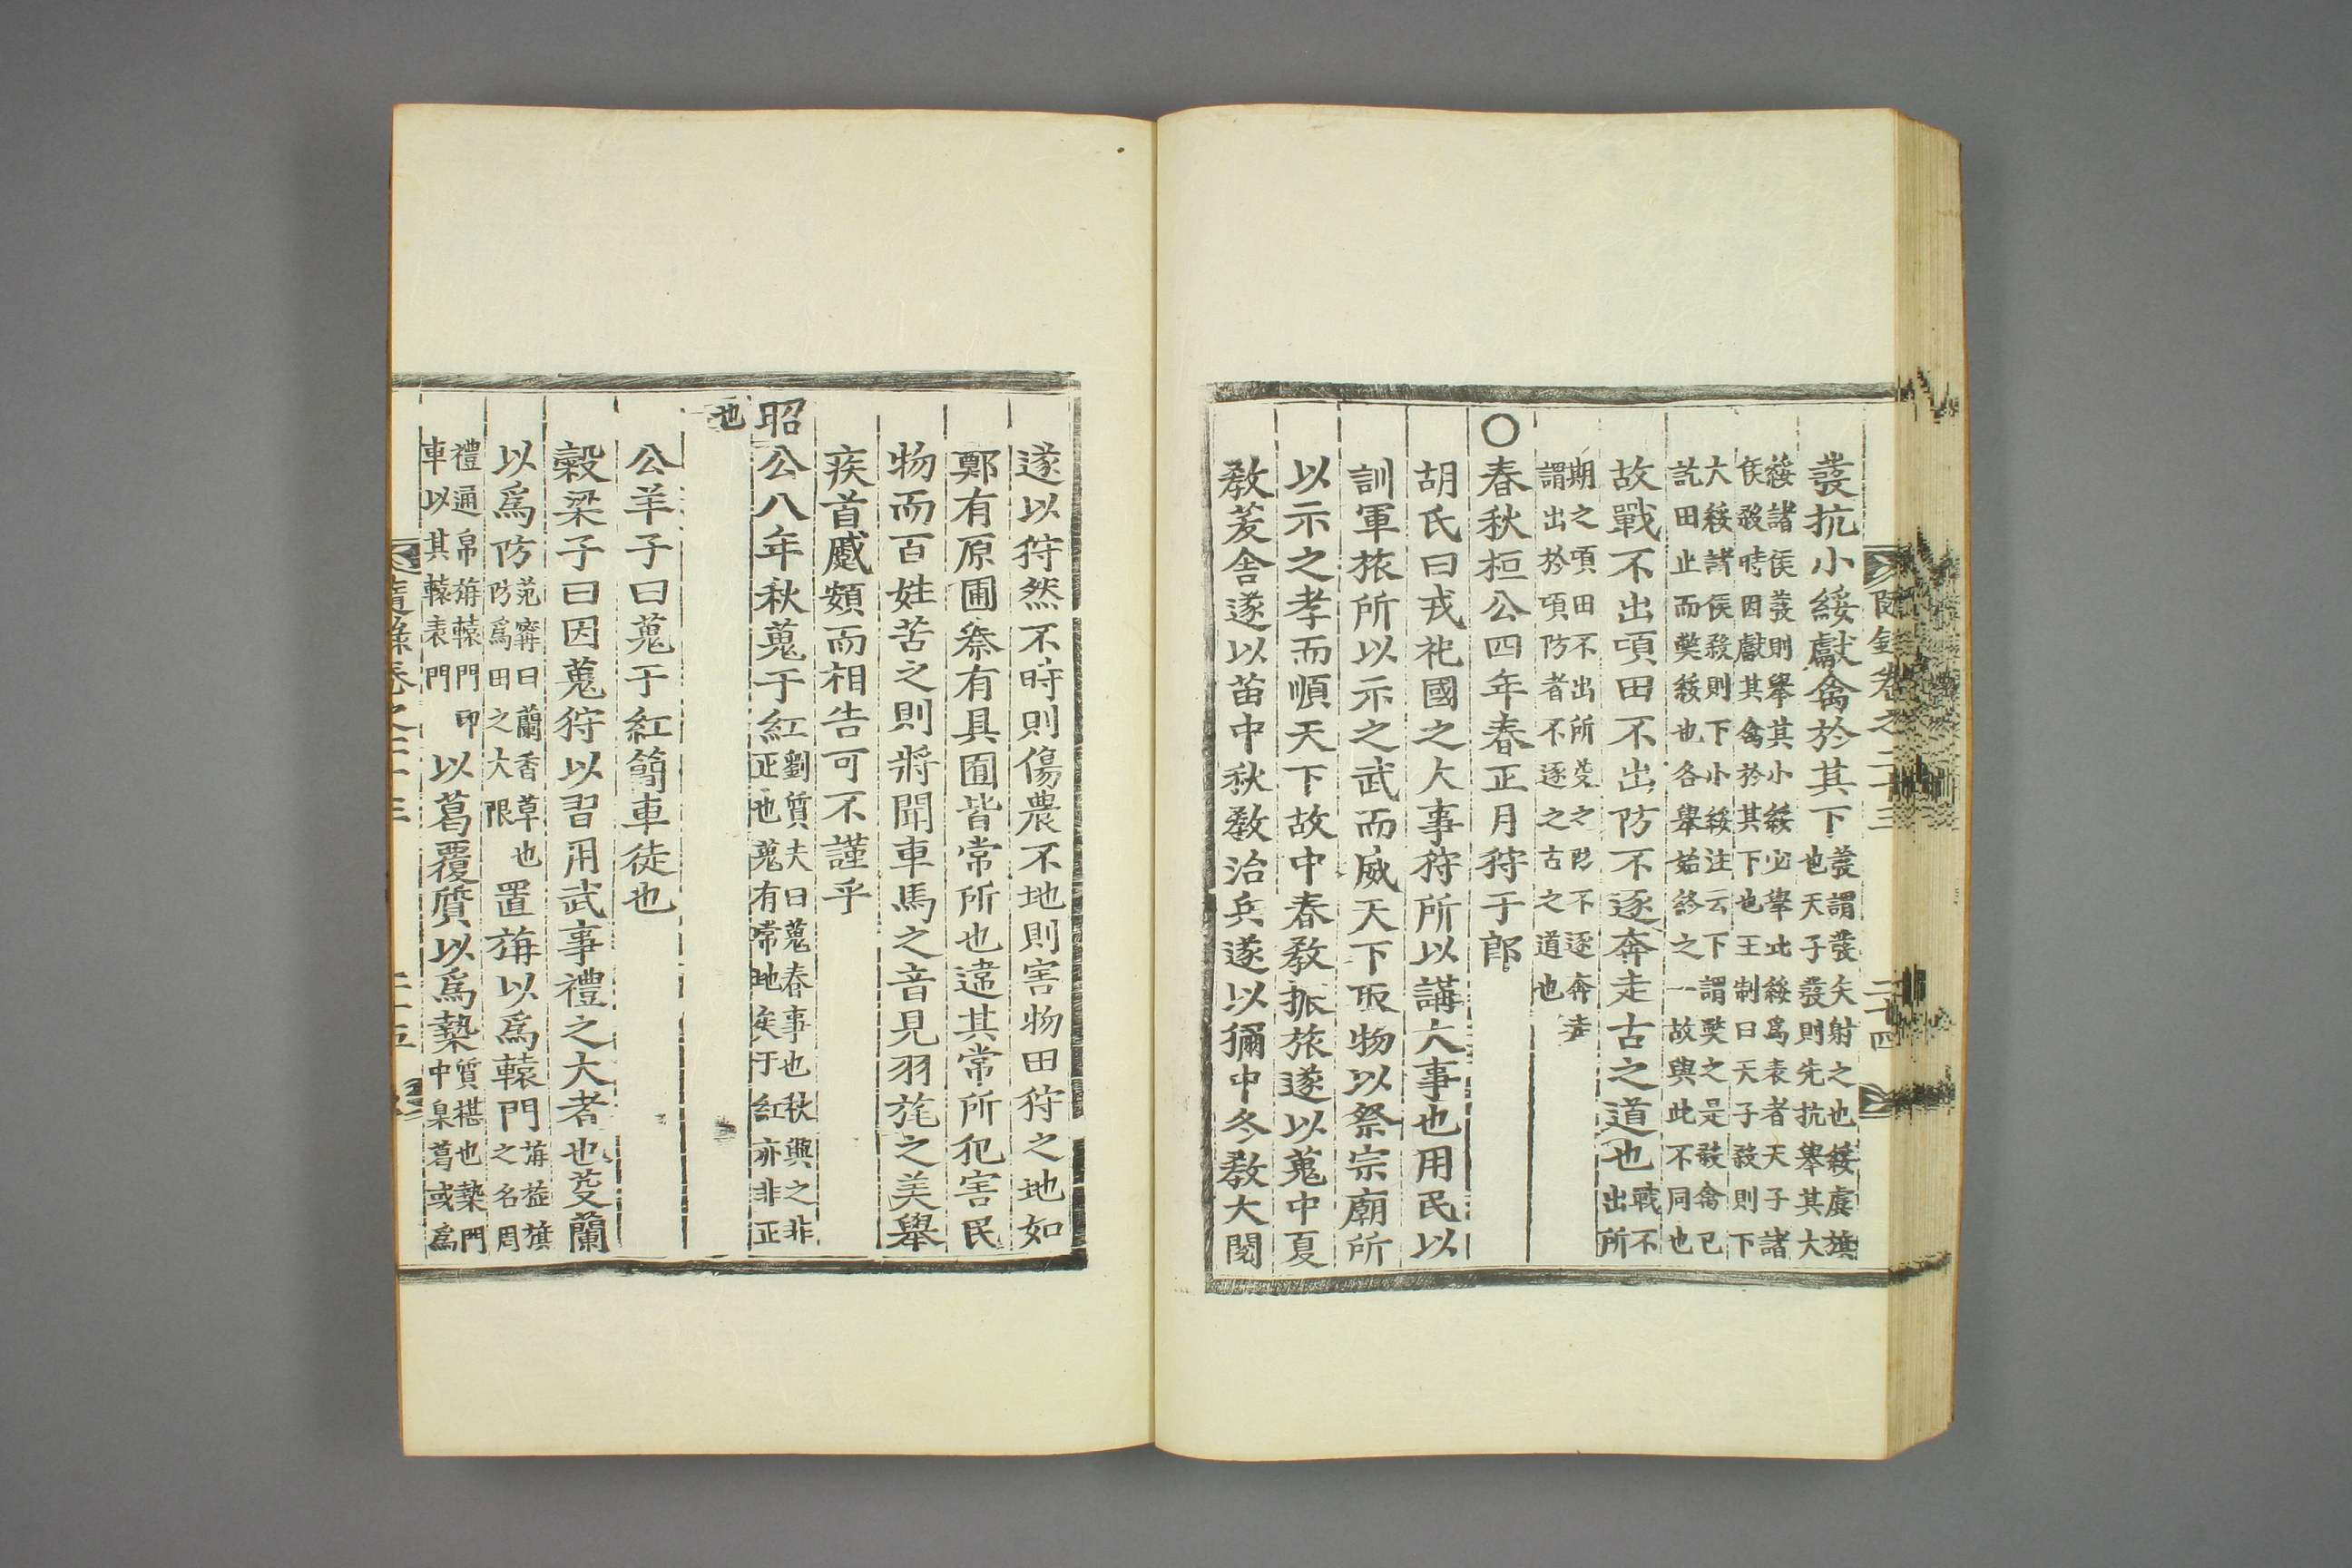 發抗小綏獻禽於其下發謂發矢射之也綏虞旗
也天子發則先抗舉其大
綏諸侯發則舉其小綏必舉此綏爲表者天子諸
侯殺時因獻其禽於其下也王制曰天子殺則下
大綏諸侯殺則下小綏注云下謂獘之是殺禽已
訖田止而獘綏也各舉始終之一故與此不同也
故戰不出頃田不出防不逐奔走古之道也戰不
出所
期之頃田不出所芟之防不逐奔走
謂出於頃防者不逐之古之道也
○春秋桓公四年春正月狩于郎
胡氏曰戎祀國之大事狩所以講大事也用民以
訓軍旅所以示之武而威天下取物以祭宗廟所
以示之孝而順天下故中春教振旅遂以蒐中夏
教茇舍遂以苗中秋教治兵遂以獮中冬教大閱
隨錄卷之二十三
二十四
遂以狩然不時則傷農不地則害物田狩之地如
鄭有原圃秦有具囿皆常所也違其常所犯害民
物而百姓苦之則將聞車馬之音見羽旄之美舉
疾首蹙頞而相告可不謹乎
昭公八年秋蒐于紅劉質夫曰蒐春事也秋興之非
正也蒐有常地矣于紅亦非正
也
公羊子曰蒐于紅簡車徒也
穀梁子曰因蒐狩以習用武事禮之大者也芟蘭
以爲防范甯曰蘭香草也
防爲田之大限
置旃以爲轅門旃旌旗
之名周
禮通帛旃轅門卬
車以其轅表門
以葛覆質以爲槷質椹也槷門
中臬葛或爲
隨錄卷之二十三
二十五